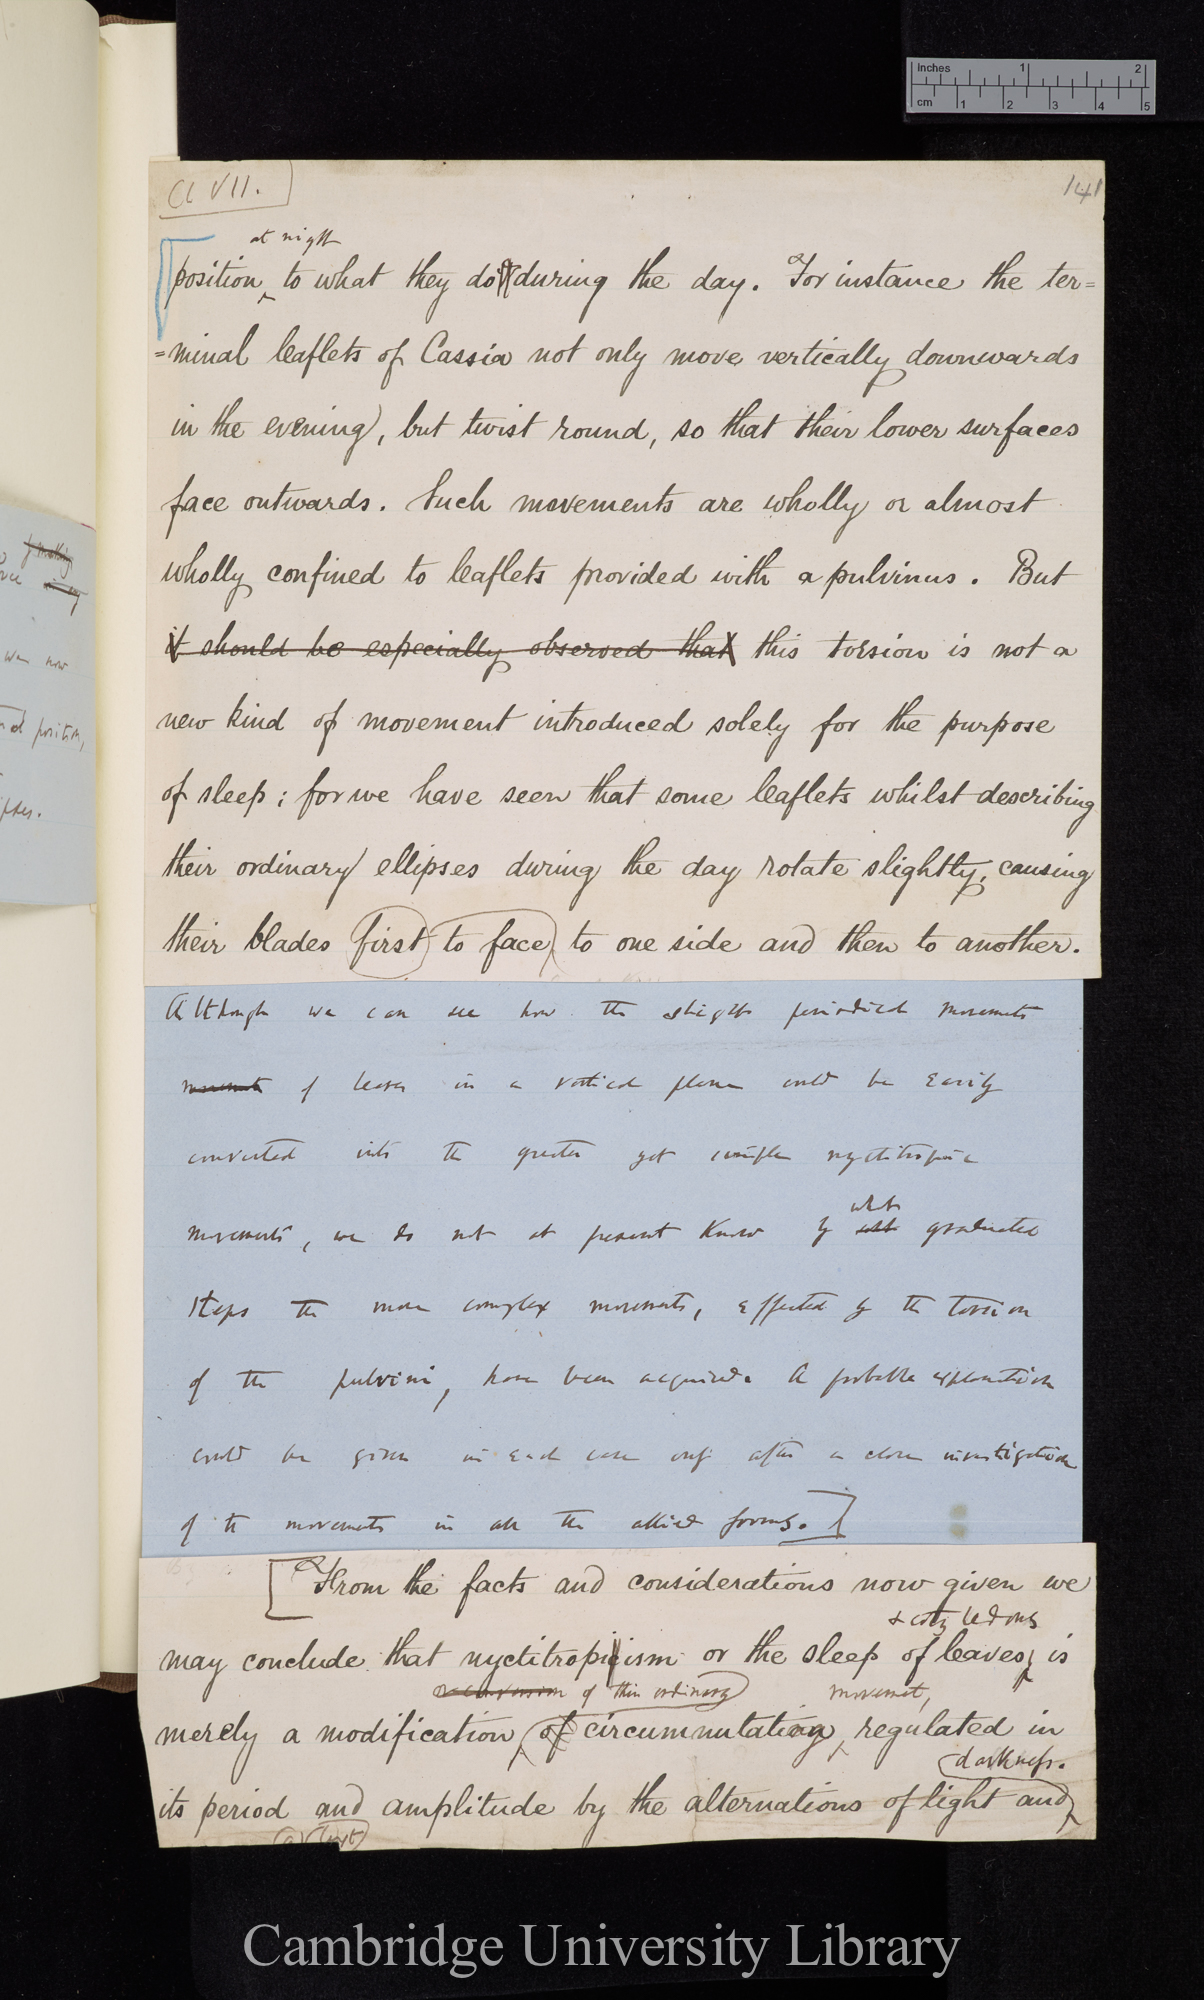 inches 1 2
cm 1 2 3 4 5
Ch VII.
141
at night
position to what they do during the day. For instance the ter=
=minal leaflets of Cassia not only move vertically downwards
in the evening, but twist round, so that their lower surfaces
face outwards. Such movements are wholly or almost
wholly confined to leaflets provided with a pulvinus. But
it should be especially observed that this torsion is not a
new kind of movement introduced solely for the purpose
of sleep; for we have seen that some leaflets whilst describing
their ordinary ellipses during the day rotate slightly, causing
their blades first to face to one side and then to another.
Although we can see how the slight periodical movements
movements of leaves in a vertical plane could be easily
converted into the greater yet simple nyctitropic
what
movements, we do not at present know by graduated
steps the more complex movements, effected by the torsion
of the pulvini, have been acquired. A probable explanation
could be given in each case only after a close investigation
of the movements in all the allied forms.]
[From the facts and considerations now given we
& cotyledons
may conclude that nyctitropism or the sleep of leaves, is
of their ordinary movement,
merely a modification of circumnutating, regulated in
darkness.
its period and amplitude by the alternations of light and
we now
position,
Cambridge University Library